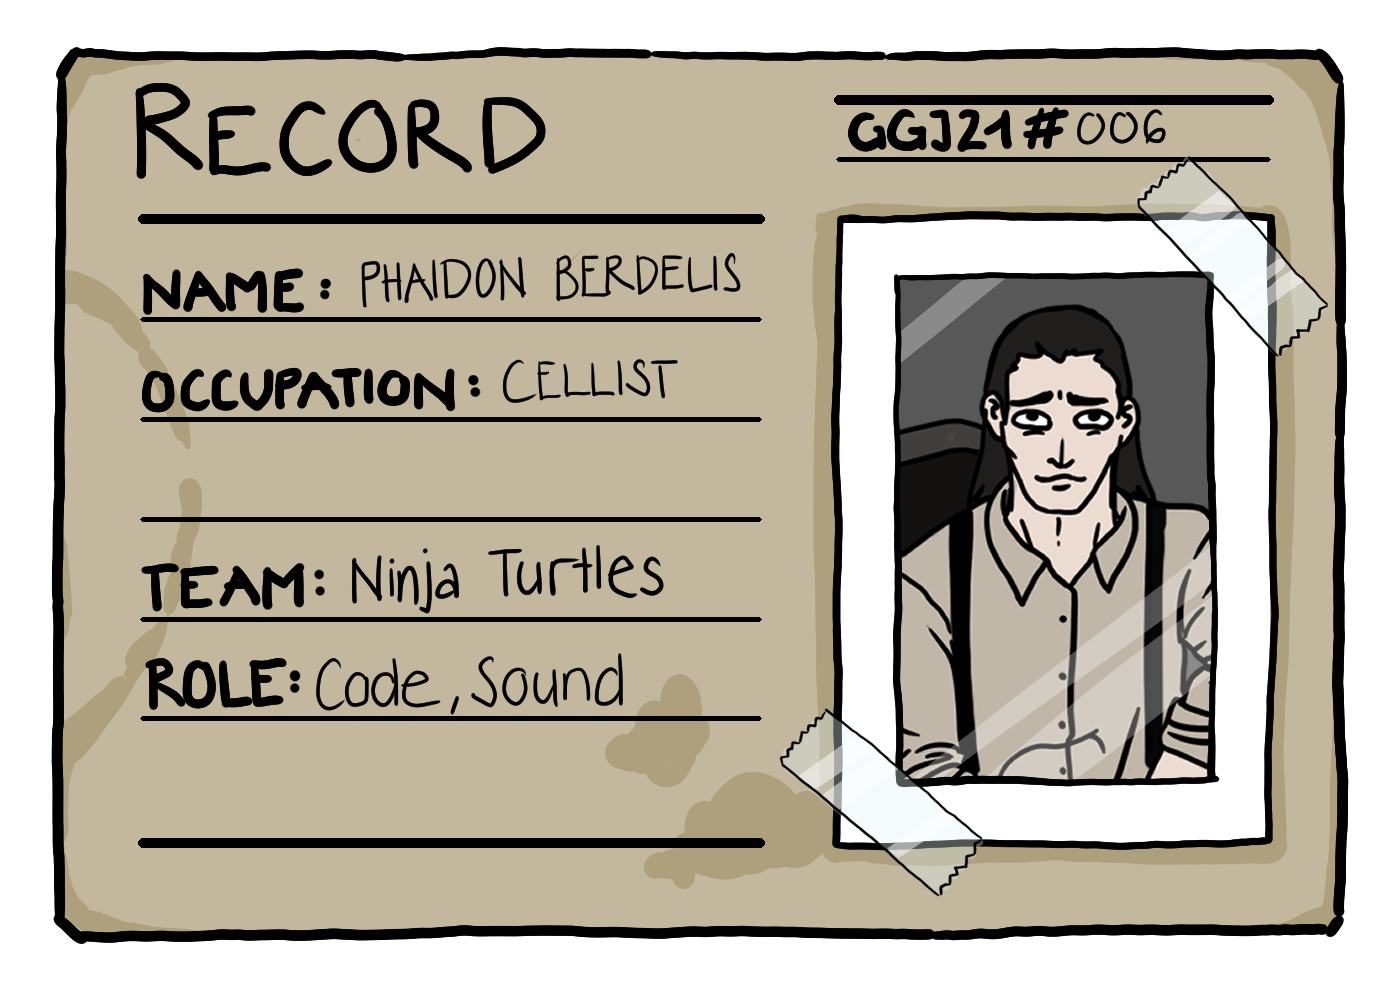 RECORD
GGJ21#006
NAME: PHAIDON BERDELIS
OCCUPATION: CELLIST
TEAM: Ninja Turtles
ROLE: Code, Sound